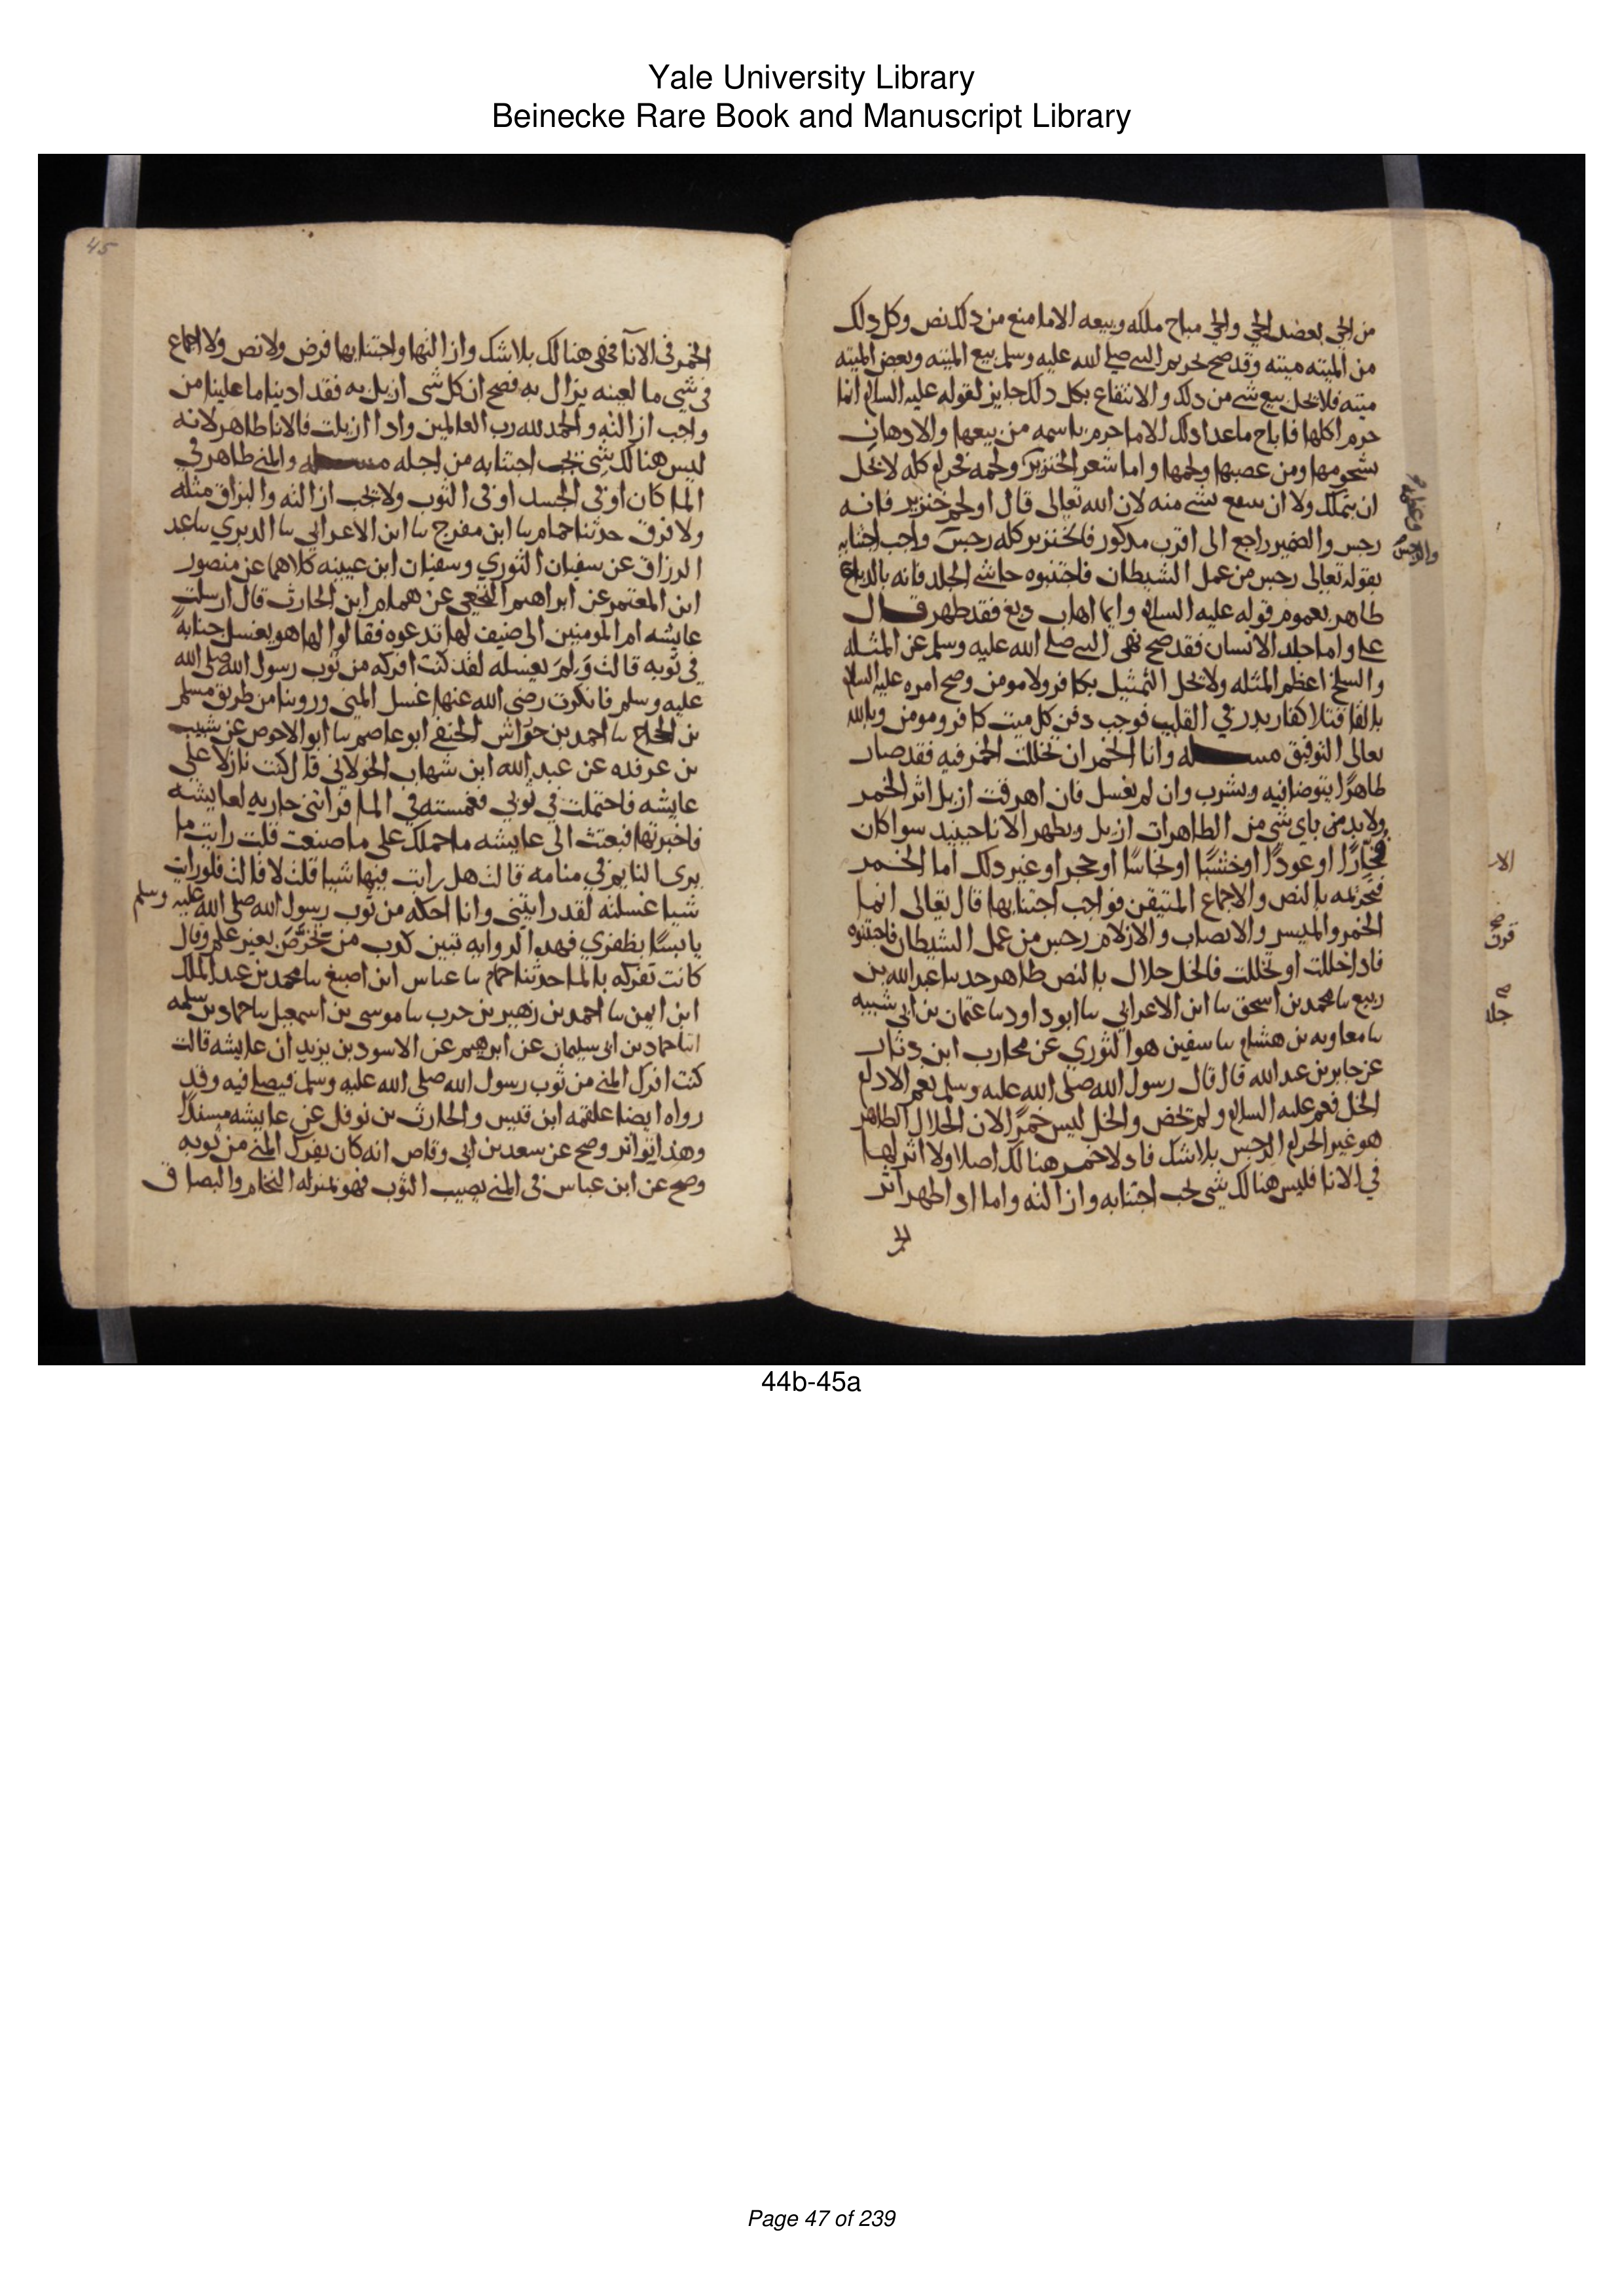 Yale University Library
Beinecke Rare Book and Manuscript Library
من الحي بعض الحي والحي مباح ملكه وبيعه الا ما منع من ذلك نص وكل ذلك
من الميته ميته وقد صح تحريم النبي صلى الله عليه وسلم بيع الميته وبعض الميته
ميته فلا يحل بيع شي من ذلك والانتفاع بكل ذلك جايز لقوله عليه السلام انما
حرم اكلها فاباح ما عدا ذلك الا ما حرم باسمه من بيعها والادهان
بشحومها ومن عصبها ولحمها واما شعر الخنزير ولحمه فحرام كله لا يحل
ان يتملك ولا ان ينتفع بشي منه لان الله تعالى قال او لحم خنزير فانه
رجس والضمير راجع الى اقرب مذكور فالخنزير كله رجس واجب اجتنابه
بقوله تعالى رجس من عمل الشيطان فاجتنبوه حاشى الجلد فانه بالدباغ
طاهر بعموم قوله عليه السلام وايما اهاب دبغ فقد طهر قال
علي واما جلد الانسان فقد صح نهي النبي صلى الله عليه وسلم عن المثله
والسلخ اعظم المثله ولا يحل التمثيل بكافر ولا مومن وصح امره عليه السلام
بالقا قتلا كفار بدر في القليب فوجب دفن كل ميت كافر ومومن وبالله
تعالى التوفيق مسله وانا الخمر ان تخللت الخمر فيه فقد صار
طاهرًا يتوضا فيه ويشرب وان لم يغسل فان اهرقت ازيل اثر الخمر
ولا بد من باي شي من الطاهرات ازيل ويطهر الانا حينيذ سوا كان
فخارًا او عودًا او خشبًا او نحاسًا او حجر او غير ذلك اما الخمر
فمحرمه بالنص والاجماع المتيقن فواجب اجتنابها قال تعالى انما
الخمر والميسر والانصاب والازلام رجس من عمل الشيطان فاجتنبوه
فاذا خللت او تخللت فالخل حلال بالنص طاهر حدثنا عبد الله بن
ربيع نا محمد بن اسحق نا ابن الاعرابي نا ابو داود نا عثمان بن ابي شيبه
نا معاويه بن هشام نا سفين هو الثوري عن محارب ابن دثار
عن جابر بن عبد الله قال قال رسول الله صلى الله عليه وسلم نعم الادام
الخل فعم عليه السلام ولم يخص والخل ليس خمرًا لان الحلال الطاهر
هو غير الحرام الرجس بلا شك فاذ لا خمر هنالك اصلا ولا اثر لها
في الانا فليس هنالك شي يجب اجتنابه وازالته واما اذا ظهر اثر
والرجس
الخمر في الانا فهي هنالك بلا شك وازالتها واجتنابها فرض ولا نص ولا اجماع
في شي ما بعينه يزال به فصح ان كل شي ازيل به فقد ادينا ما علينا من
واجب ازالته والحمد لله رب العالمين واذا ازيلت فالانا طاهر لانه
ليس هنالك شي يجب اجتنابه من اجله مسله والمني طاهر في
الما كان او في الجسد او في الثوب ولا تجب ازالته والبزاق مثله
ولا فرق حدثنا حمام نا ابن مفرج نا ابن الاعرابي نا الدبري نا عبد
الرزاق عن سفيان الثوري وسفيان ابن عيينه كلاهما عن منصور
ابن المعتمر عن ابراهيم النخعي عن همام ابن الحارث قال ارسلت
عايشه ام المومنين الى ضيف لها تدعوه فقالوا لها هو يغسل جنابةً
في ثوبه قالت وَلِمَ يغسله لقد كنت افركه من ثوب رسول الله صلى الله
عليه وسلم فانكرت رضي الله عنها غسل المني وروينا من طريق مسلم
بن الحجاج نا احمد بن جواش الحنفي ابو عاصم نا ابو الاحوص عن شبيب
بن عرقده عن عبد الله ابن شهاب الخولاني قال كنت نازلا على
عايشه فاحتلمت في ثوبي فغمسته في الما فراتني جاريه لعايشه
فاخبرتها فبعثت الى عايشه ما حملك على ما صنعت قلت رايت ما
يرى النايم في منامه قالت هل رايت فيها شيا قلت لا قالت فلو رايت
شيا غسلته لقد رايتني وانا احكه من ثوب رسول الله صلى الله عليه وسلم
يابسًا بظفري فهذه الروايه تبين كذب من تخرّصَ بغير علم وقال
كانت تفركه بالما حدثنا حمام نا عباس ابن اصبغ نا محمد بن عبد الملك
ابن ايمن نا احمد بن زهير بن حرب نا موسى بن اسمعيل نا حماد بن سلمه
انا حماد بن ابي سليمان عن ابرهيم عن الاسود بن يزيد ان عايشه قالت
كنت افرك المني من ثوب رسول الله صلى الله عليه وسلم فيصلي فيه وقد
رواه ايضا علقمه ابن قيس والحارث بن نوفل عن عايشه مسندًا
وهذا تواتر وصح عن سعد بن ابي وقاص انه كان يفرك المني من ثوبه
وصح عن ابن عباس في المني يصيب الثوب فهو بمنزله النخام والبصاق
45
44b-45a
Page 47 of 239